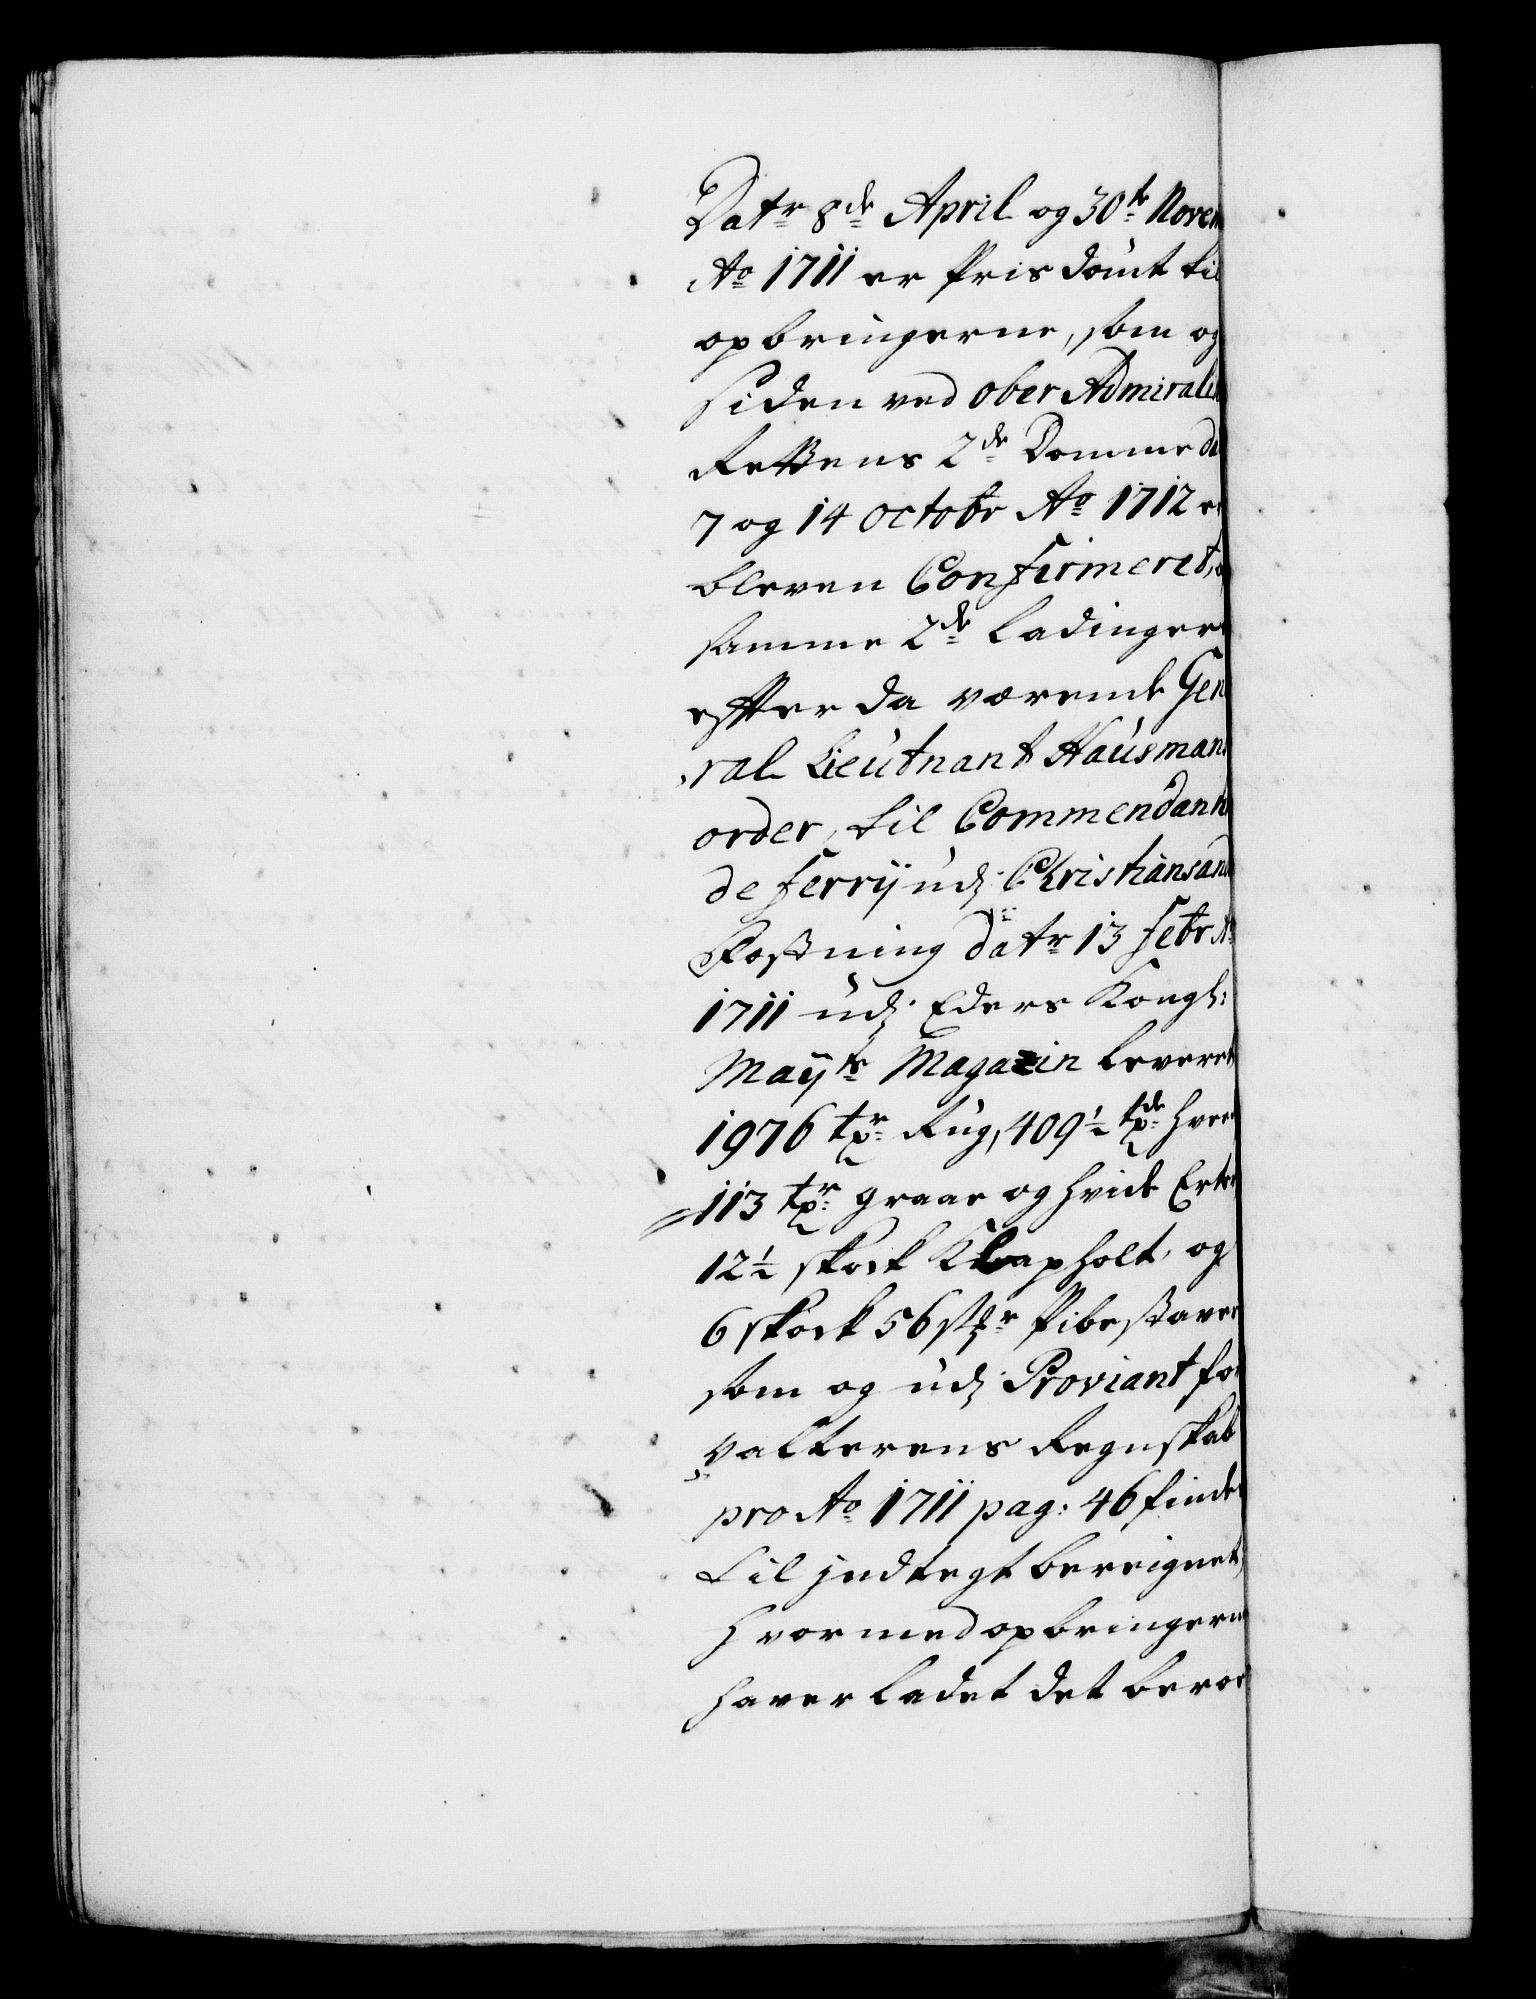 Datr 8de April og 30te Novem
Ao 1711 er Pris dömt til
opbringerne, som og
siden ved ober Admiralit
Rettens 2de Domme da
7 og 14 octobr Ao 1712 er
bleven Confirmeret, 
samme 2de Ladinger
efter da værende Gen
ral Lieutnant Hausman
order, til Commendant
de Ferrÿ udj Christiansand
Fæstning datr 13 Febr Ao
1711 udj Eders Kongl:
Maÿts Magazin leveret
1976 tr Rug, 409½ tde hve
113 tr graae og hvide Erter
12½ skock Klapholt, og
6 skock 56 stkr Pibestaver
som og udj Proviant for
valterens Regnskab
pro Ao 1711 pag: 46 findes
til jndtegt bereignet,
hvormed opbringerne
haver ladet det beroe